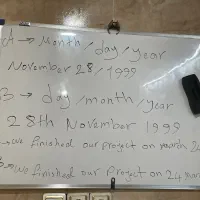 A → Month / day / year
November 28 / 1999
B → day / month / year
28th November 1999
→ we finished our project on march 24
→ we finished our project on 24 mar